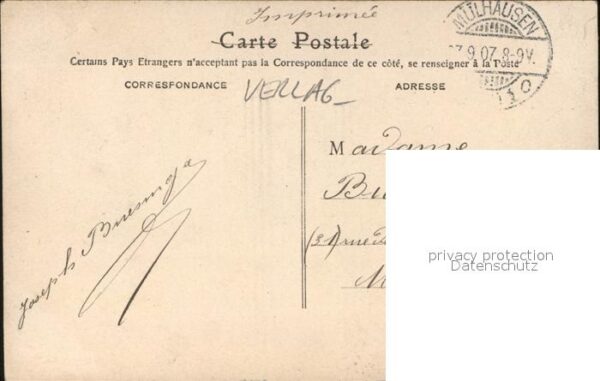 Imprimée
Carte Postale
Certains Pays Etrangers n'acceptant pas la Correspondance de ce côté, se renseigner à la Poste
CORRESPONDANCE
VERLAG
ADRESSE
MÜLHAUSEN
9.07.8-9V.
Madame
Bu
(31 rue d
M
Joseph
privacy protection
Datenschutz